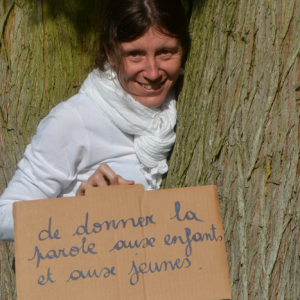 de donner la
parole aux enfants
et aux jeunes.